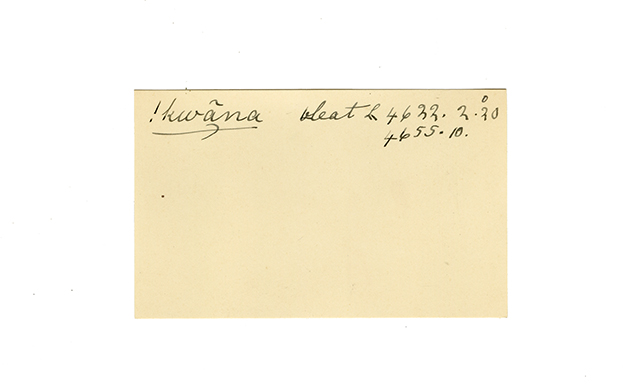 !kwãna bleat L 4622. 2. 20
4655. 10.